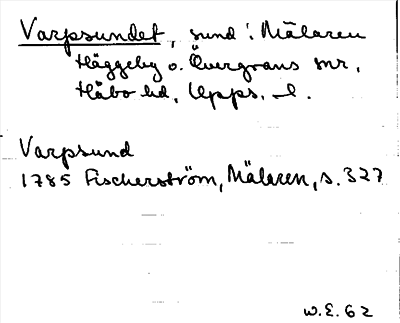 Varpsundet, sund i Mälaren
Häggeby o. Övergrans snr,
Håbo hd, Upps. l.
Varpsund
1785 Fischerström, Mälaren, s. 327
W.E. 62